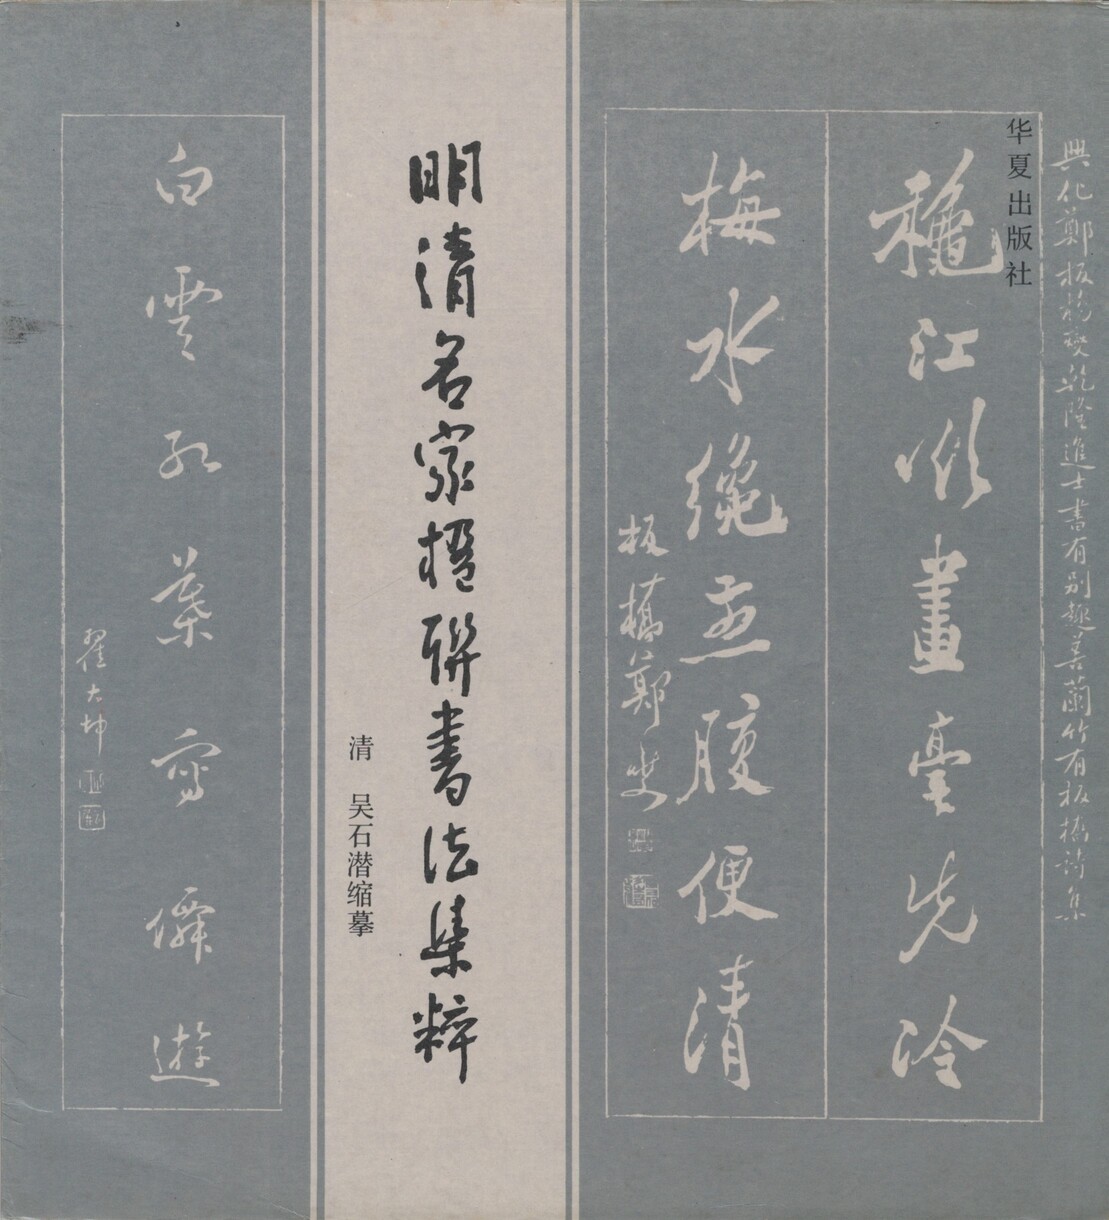 興化鄭板橋燮乾隆進士書有别趣善蘭竹有板橋詩集
华夏出版社
穐江欲畫毫先冷
梅水纔腹便清
板橋鄭燮
明清名家楹聯書法集粹
清 吴石潜缩摹
白雲紅葉寫僊遊
翟大坤